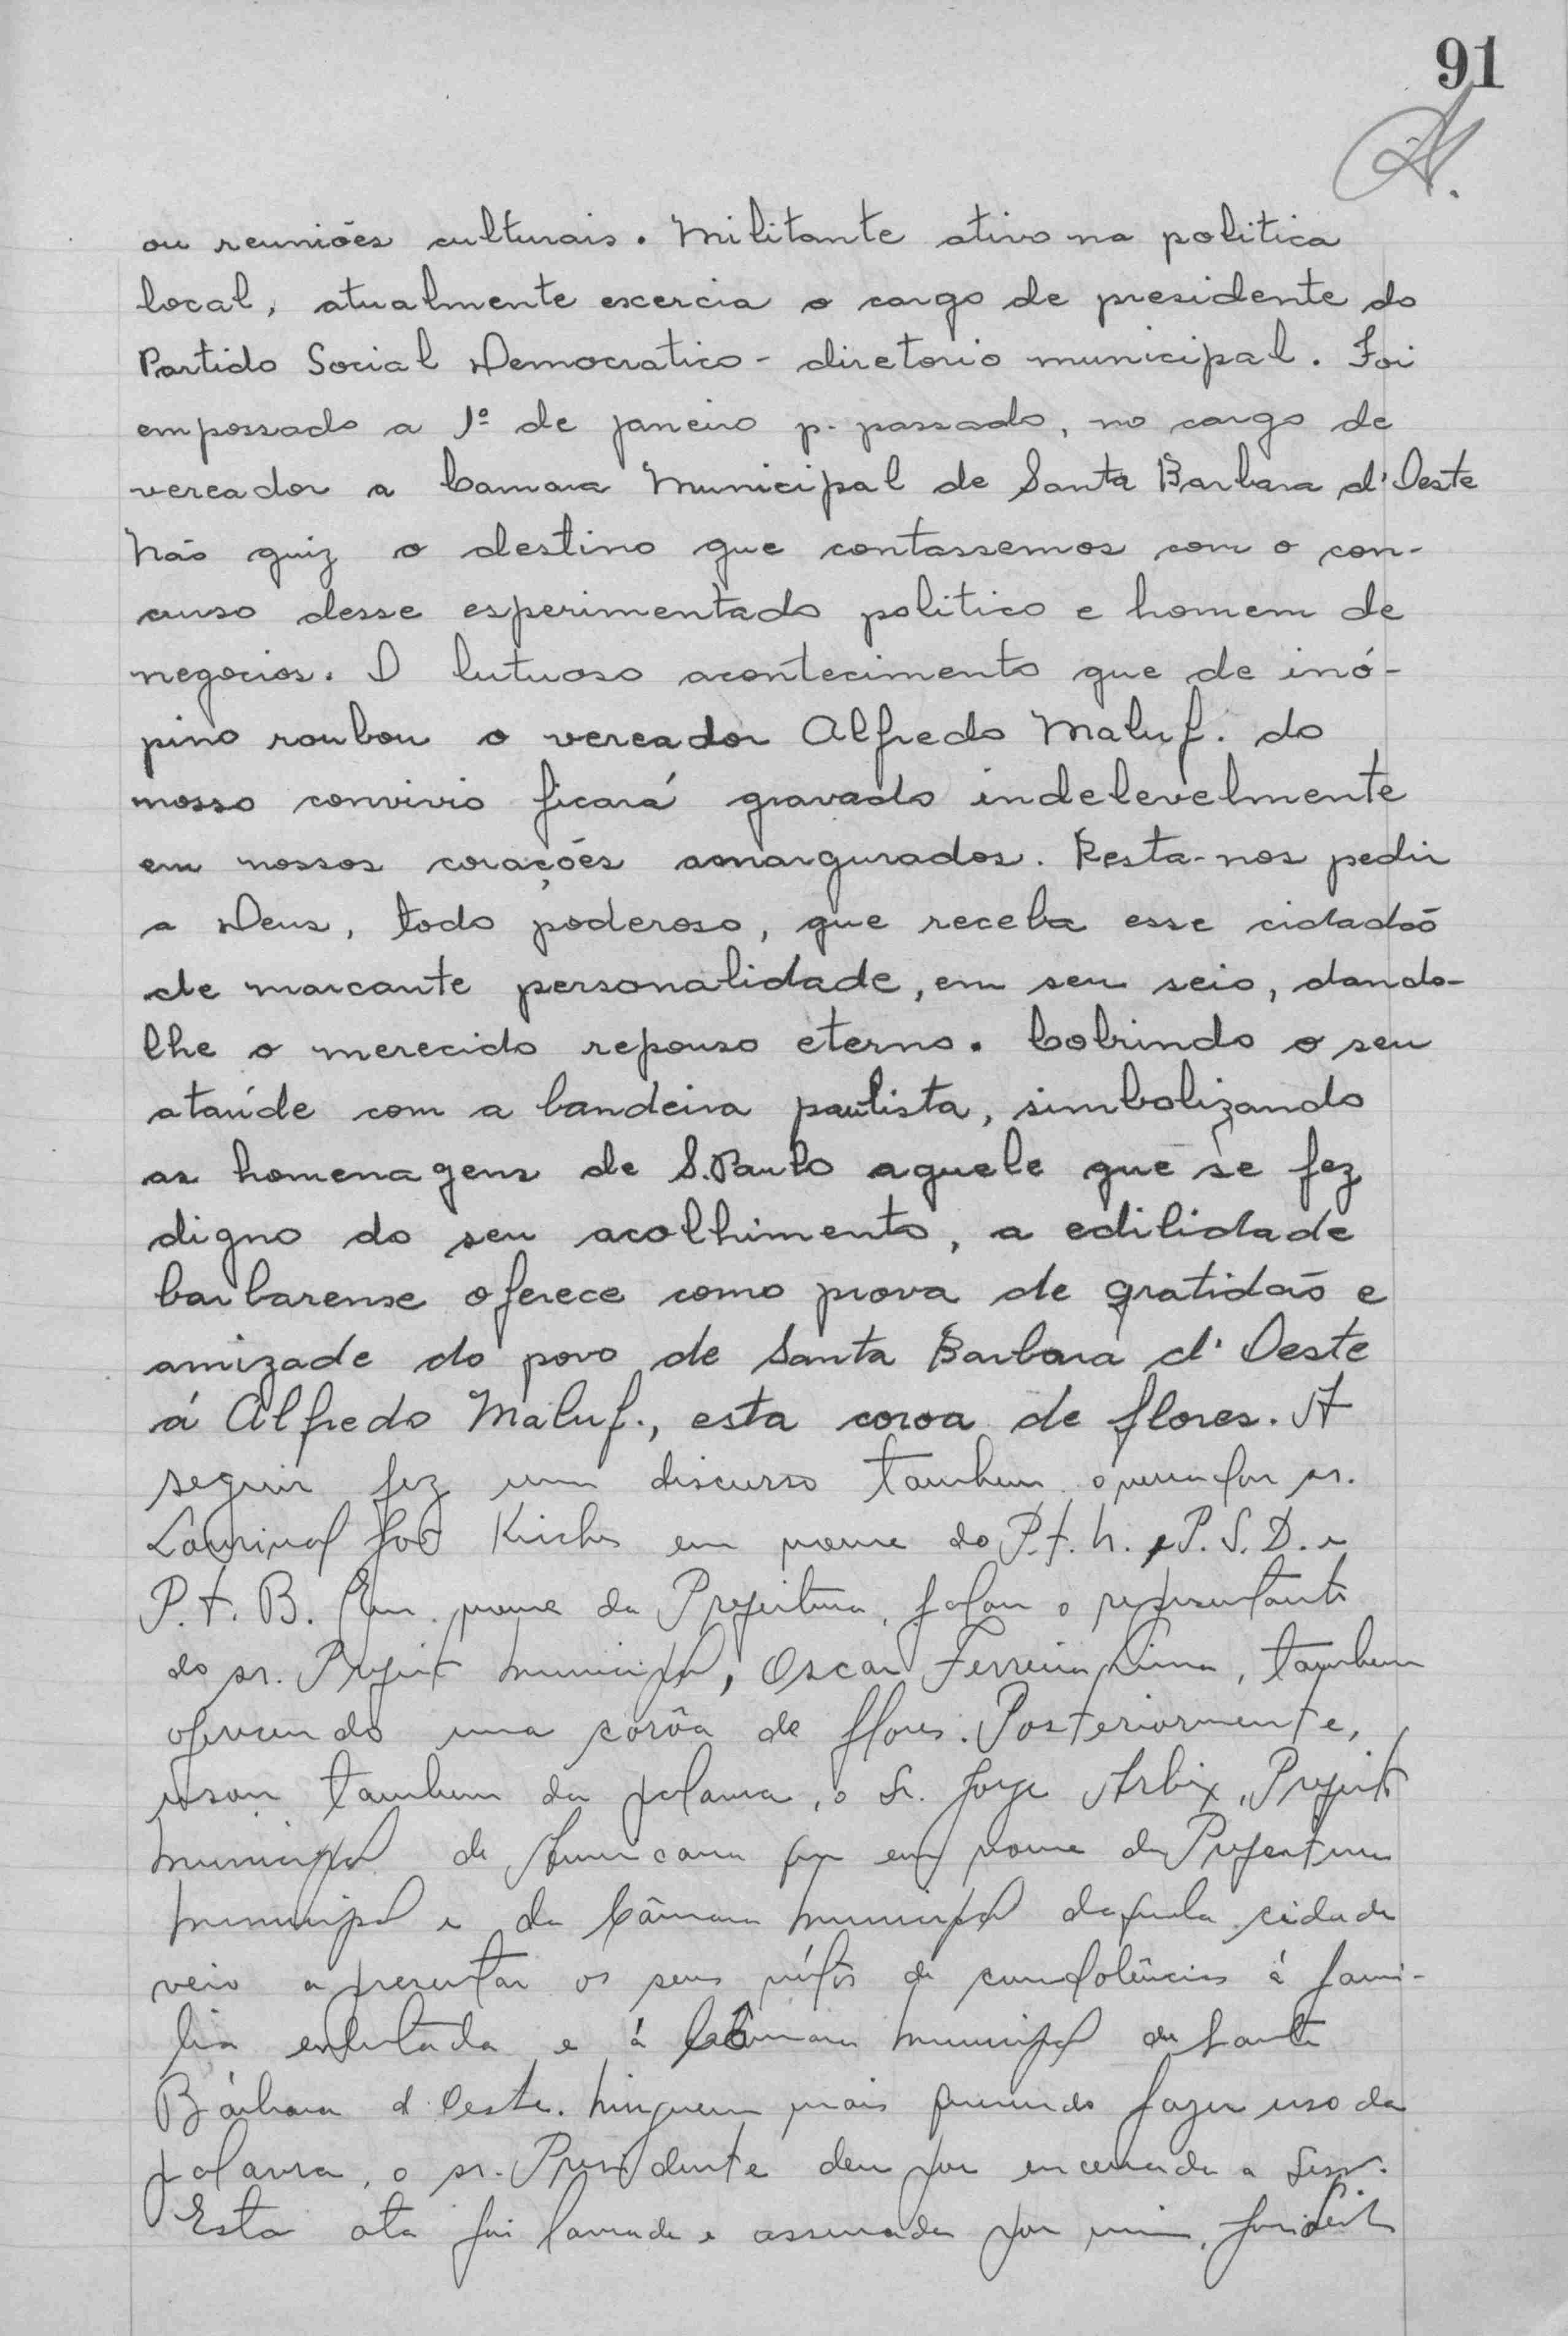 91
ou reuniões culturais. Militante ativo na politica
local, atualmente excercia o cargo de presidente do
Partido Social Democratico - diretorio municipal. Foi
empossado a 1º de janeiro p. passado, no cargo de
vereador a Camara Municipal de Santa Barbara d'Oeste
Não quiz o destino que contassemos com o con-
curso desse esperimentado politico e homem de
negocios. O lutuoso acontecimento que de inó-
pino roubou o vereador Alfredo Maluf. do
nosso convivio ficará gravado indelevelmente
em nossos corações amargurados. Resta-nos pedir
a Deus, todo poderoso, que receba esse cidadão
de marcante personalidade, em seu seio, dando-
lhe o merecido repouso eterno. Cobrindo o seu
ataúde com a bandeira paulista, simbolizando
as homenagens de S. Paulo aquele que se fez
digno do seu acolhimento, a edilidade
barbarense oferece como prova de gratidão e
amizade do povo de Santa Barbara d'Oeste
á Alfredo Maluf., esta coroa de flores. A
seguir fez um discurso tambem o vereador sr.
em nome do P.T.N. e P.S.D. e
P.T.B. Em nome da Prefeitura, falou o representante
do sr. Prefeito Municipal, Oscar Ferreira Lima, tambem
oferecendo uma corôa de flores. Posteriormente,
usou tambem da palavra, o Sr. Jorge Arbix, Prefeito
Municipal de Americana que em nome da Prefeitura
Municipal e da Câmara Municipal daquela cidade
veio apresentar os seus vótos de condolências á fami-
lia enlutada e á Câmara Municipal de Santa
Bárbara d'Oeste. Ninguem mais querendo fazer uso da
palavra, o sr. Presidente deu por encerrada a
Esta ata foi lavrada e assinada por mim,